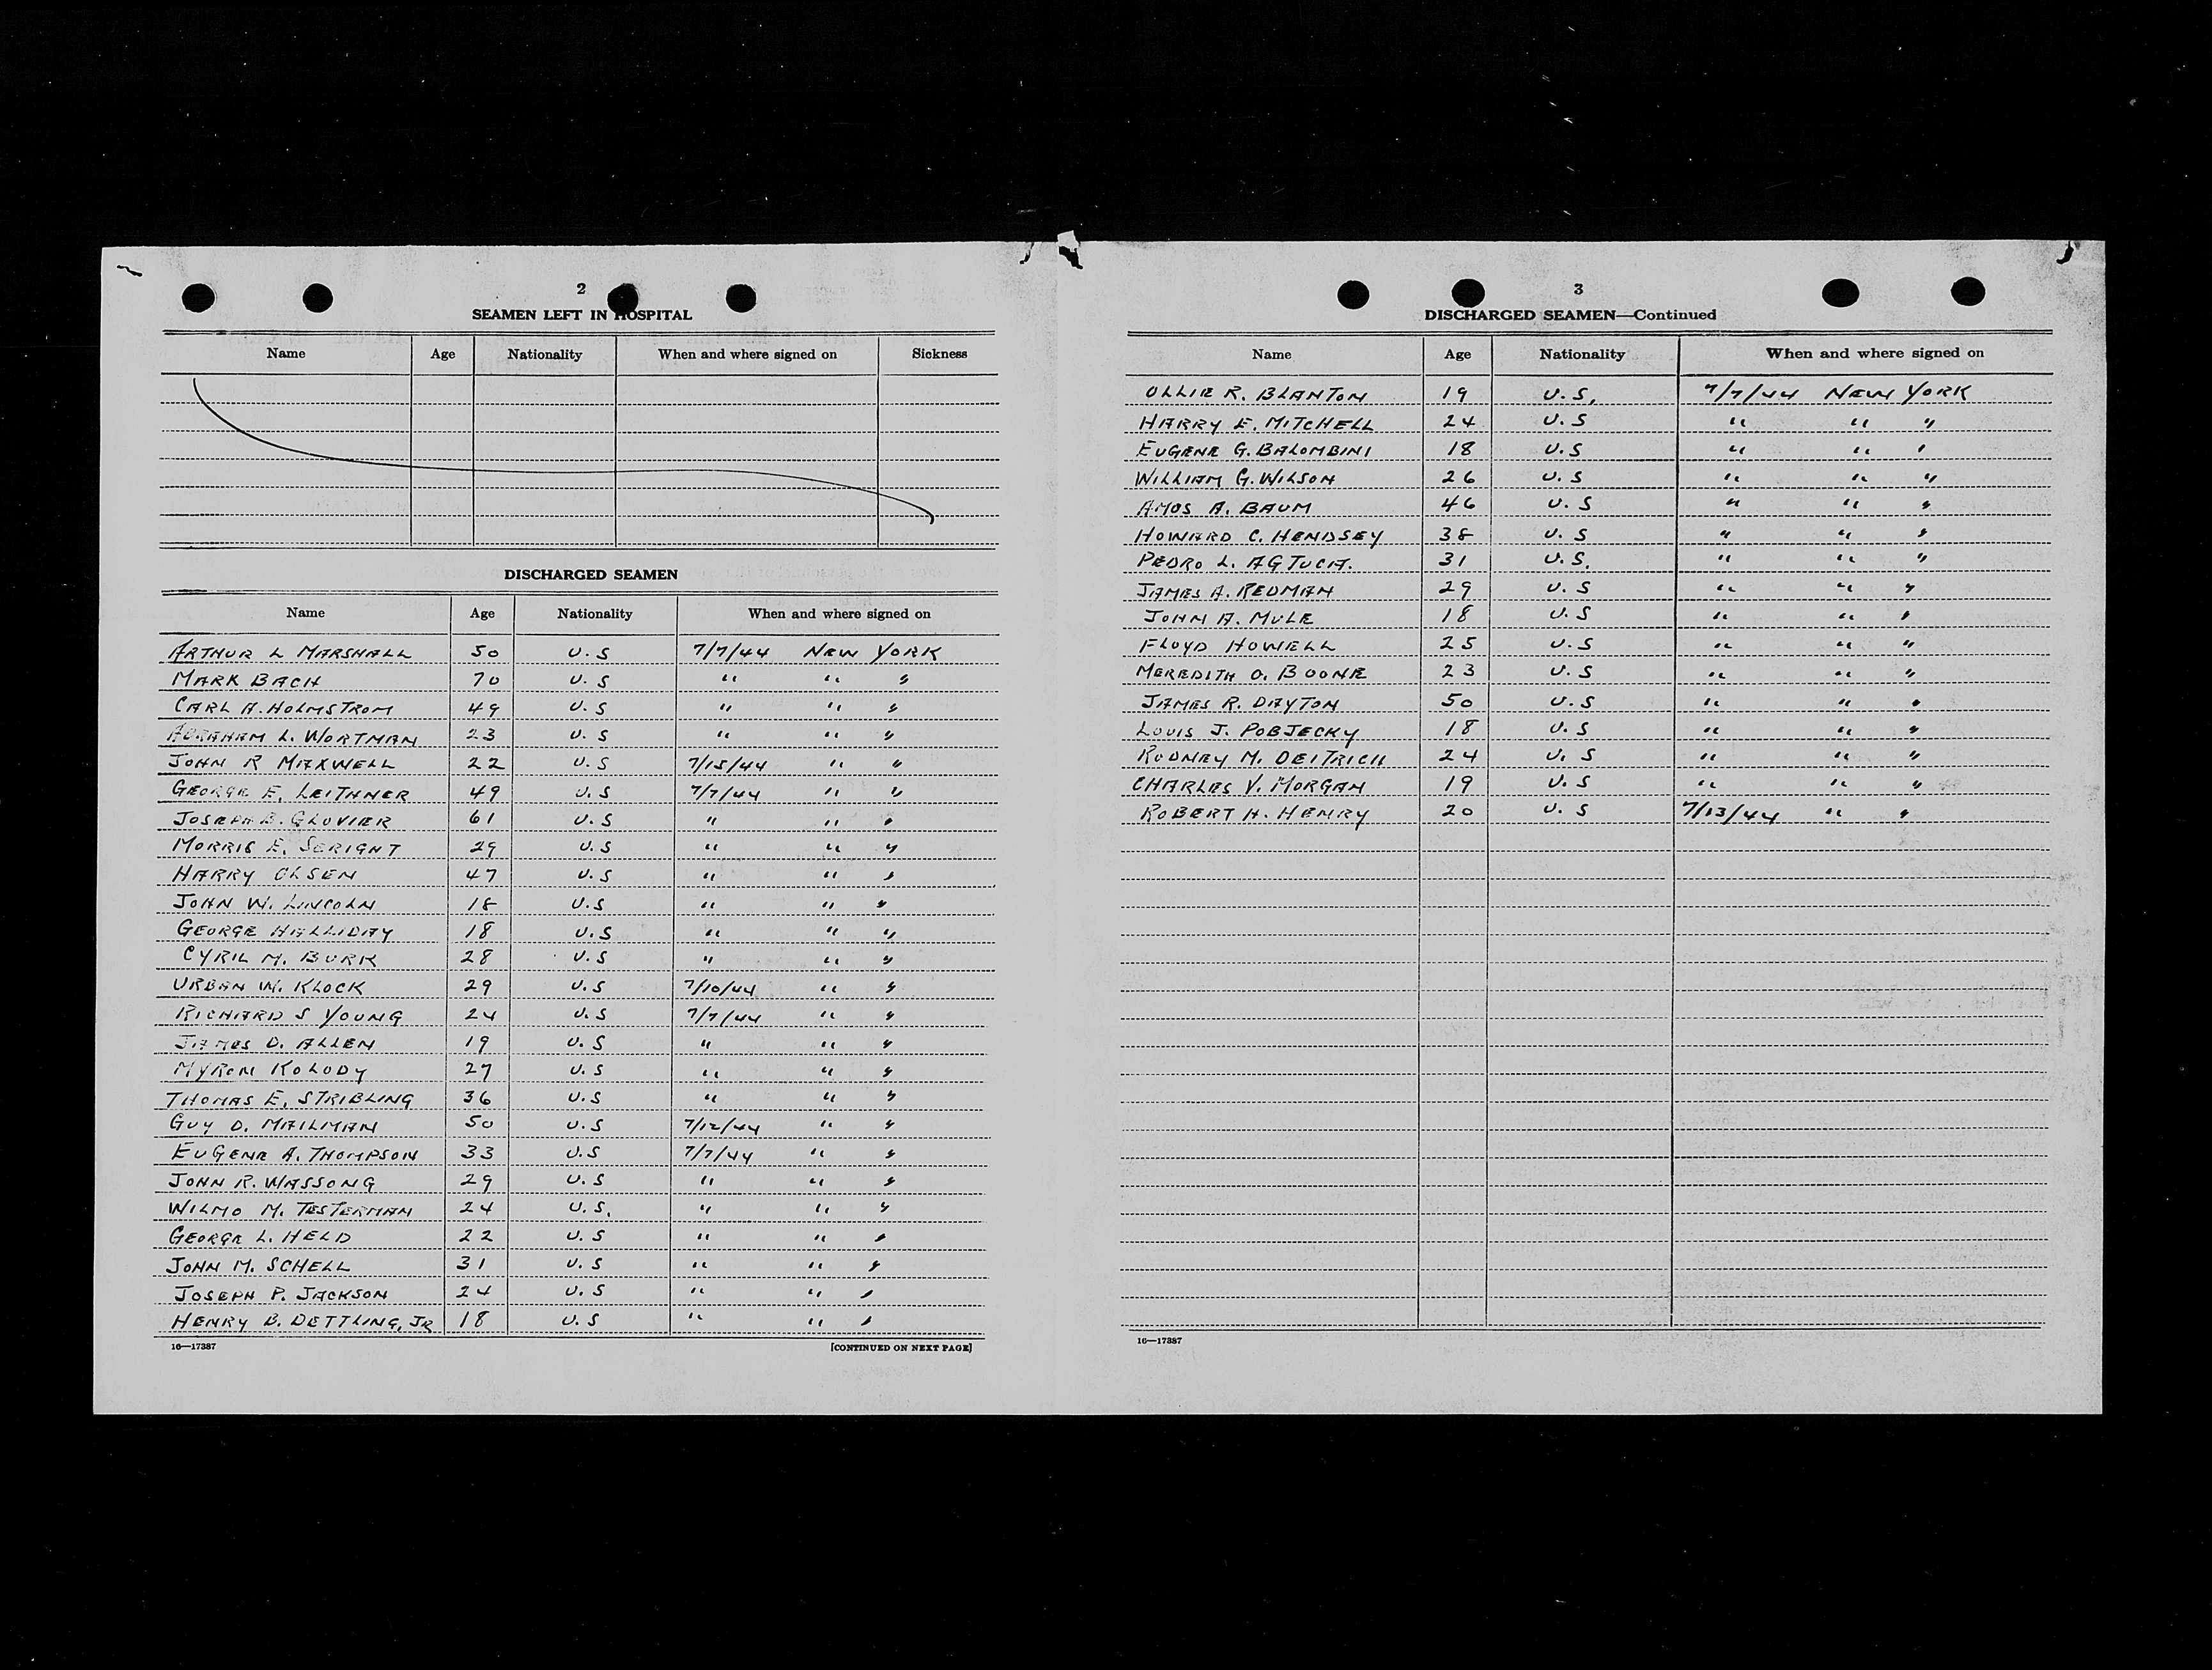 2
SEAMEN LEFT IN HOSPITAL
Name Age Nationality When and where signed on Sickness
DISCHARGED SEAMEN
Name Age Nationality When and where signed on
ARTHUR L MARSHALL 50 U.S 7/7/44 NEW YORK
MARK BACH 70 U.S " " "
CARL A. HOLMSTROM 49 U.S " " "
ABRAHAM L. WORTMAN 23 U.S " " "
JOHN R MAXWELL 22 U.S 7/15/44 " "
GEORGE E. LEITHNER 49 U.S 7/7/44 " "
JOSEPH B. GLOVIER 61 U.S " " "
MORRIS E. SERIGHT 29 U.S " " "
HARRY OLSEN 47 U.S " " "
JOHN W. LINCOLN 18 U.S " " "
GEORGE HALLIDAY 18 U.S " " "
CYRIL M. BURK 28 U.S " " "
URBAN W. KLOCK 29 U.S 7/10/44 " "
RICHARD S YOUNG 24 U.S 7/7/44 " "
JAMES D. ALLEN 19 U.S " " "
MYRON KOLODY 27 U.S " " "
THOMAS E. STRIBLING 36 U.S " " "
GUY D. MAILMAN 50 U.S 7/12/44 " "
EUGENE A. THOMPSON 33 U.S 7/7/44 " "
JOHN R. WASSONG 29 U.S " " "
WILMO M. TESTERMAN 24 U.S. " " "
GEORGE L. HELD 22 U.S " " "
JOHN M. SCHELL 31 U.S " " "
JOSEPH P. JACKSON 24 U.S " " "
HENRY B. DETTLING, JR 18 U.S " " "
16—17387 [CONTINUED ON NEXT PAGE]
3
DISCHARGED SEAMEN—Continued
Name Age Nationality When and where signed on
OLLIE R. BLANTON 19 U.S. 7/7/44 NEW YORK
HARRY E. MITCHELL 24 U.S " " "
EUGENE G. BALOMBINI 18 U.S " " "
WILLIAM G. WILSON 26 U.S " " "
AMOS A. BAUM 46 U.S " " "
HOWARD C. HENDSEY 38 U.S " " "
PEDRO L. AGTUCA. 31 U.S. " " "
JAMES A. REDMAN 29 U.S " " "
JOHN A. MULE 18 U.S " " "
FLOYD HOWELL 25 U.S " " "
MEREDITH O. BOONE 23 U.S " " "
JAMES R. DAYTON 50 U.S " " "
LOUIS J. POBJECKY 18 U.S " " "
RODNEY M. DEITRICH 24 U.S " " "
CHARLES V. MORGAN 19 U.S " " "
ROBERT H. HENRY 20 U.S 7/13/44 " "
16—17387